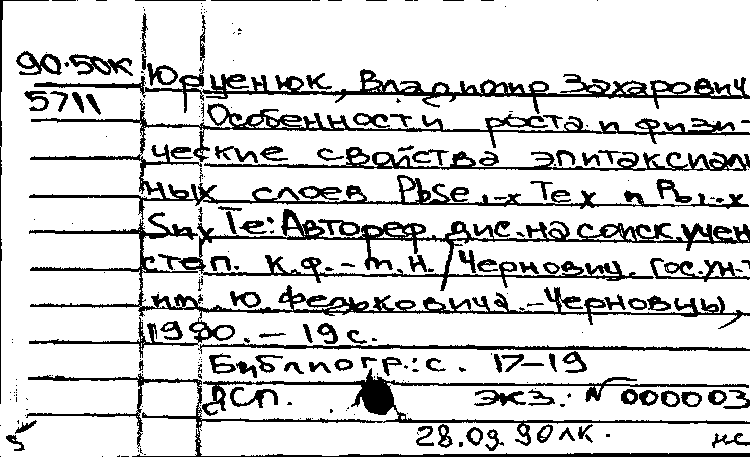 90-50К Юрценюк, Владимир Захарович
5711 Особенности роста и физи-
ческие свойства эпитаксиаль
ных слоев PbSe1-x Tex и Pb1-x
SnxTe: Автореф. дис. на соиск. учен
степ. к.ф.-м.н. / Черновиц. гос. ун-т
им. Ю. Федьковича. - Черновцы,
1990. - 19 с.
Библиогр.: с. 17-19
ДСП. экз. № 000003
28.09.90 ЛК. нс